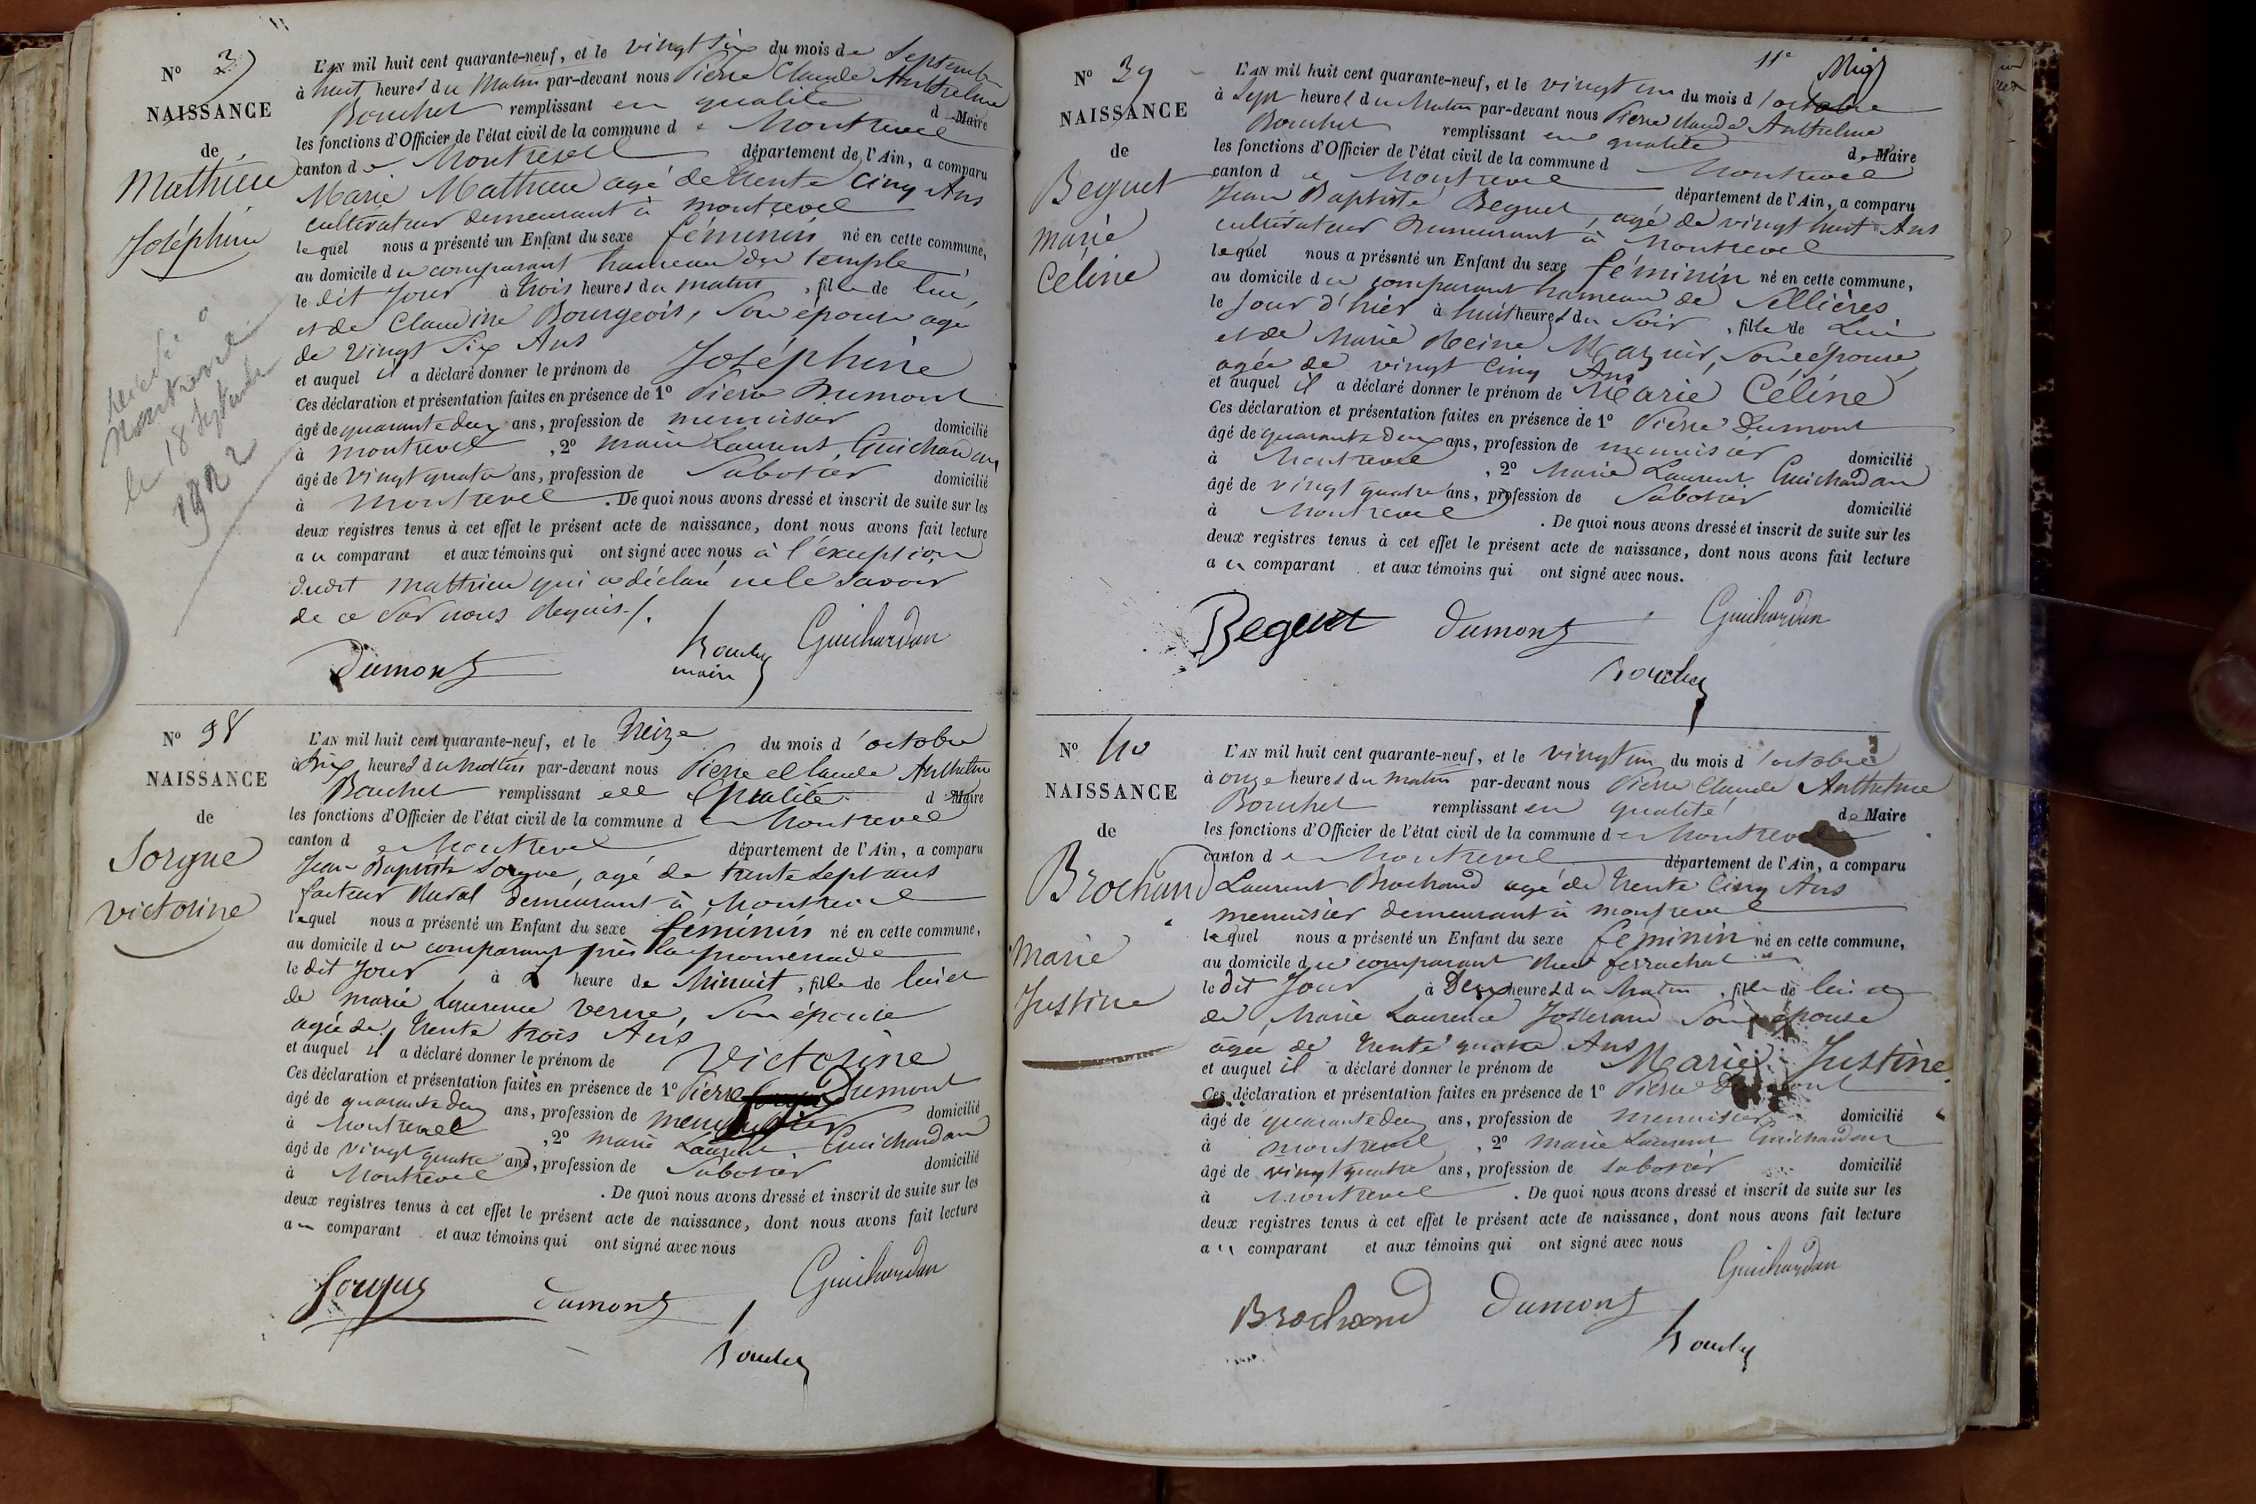 N° 37
NAISSANCE
de
Mathieu
Joséphine
décédée à
Montrevel
le 18 septembre
1922
L'AN mil huit cent quarante-neuf, et le vingt six du mois de Septembre
à huit heures du Matin par-devant nous Pierre Claude Anthelme
Bouchet remplissant en qualité de Maire
les fonctions d'Officier de l'état civil de la commune de Montrevel
canton de Montrevel département de l'Ain, a comparu
Marie Mathieu agé de trente cinq Ans
cultivateur demeurant à montrevel
lequel nous a présenté un Enfant du sexe féminin né en cette commune,
au domicile du comparant hameau du temple
le dit Jour à trois heures du matin, fille de lui,
et de Claudine Bourgeois, Son épouse agé
de vingt Six Ans
et auquel il a déclaré donner le prénom de Joséphine
Ces déclaration et présentation faites en présence de 1° Pierre Dumont
âgé de quarante deux ans, profession de menuisier domicilié
à montrevel, 2° marie Laurent Guichardan
âgé de vingt quatre ans, profession de Sabotier domicilié
à montrevel. De quoi nous avons dressé et inscrit de suite sur les
deux registres tenus à cet effet le présent acte de naissance, dont nous avons fait lecture
au comparant et aux témoins qui ont signé avec nous à l'exception
dudit mathieu qui a déclaré ne le Savoir
de ce par nous requis./.
Dumont Bouchet Guichardan
maire
N° 38
NAISSANCE
de
Sorgue
victorine
L'AN mil huit cent quarante-neuf, et le treize du mois d'octobre
à Six heures du Matin par-devant nous Pierre Claude Anthelme
Bouchet remplissant en qualité de Maire
les fonctions d'Officier de l'état civil de la commune de Montrevel
canton de Montrevel département de l'Ain, a comparu
Jean Baptiste Sorgue, agé de trente Sept ans
facteur Rural demeurant à Montrevel
lequel nous a présenté un Enfant du sexe féminin né en cette commune,
au domicile du comparant près la promenade
le dit Jour à heure de Minuit, fille de lui et
de marie Laurence verne, Son épouse
agée de trente trois Ans
et auquel il a déclaré donner le prénom de Victorine
Ces déclaration et présentation faites en présence de 1° Pierre Dumont
âgé de quarante deux ans, profession de menuisier domicilié
à Montrevel, 2° marie Laurent Guichardan
âgé de vingt quatre ans, profession de Sabotier domicilié
à Montrevel. De quoi nous avons dressé et inscrit de suite sur les
deux registres tenus à cet effet le présent acte de naissance, dont nous avons fait lecture
au comparant et aux témoins qui ont signé avec nous
Sorgue Dumont Guichardan
Bouchet
11e
N° 39
NAISSANCE
de
Beguet
marie
Celine
L'AN mil huit cent quarante-neuf, et le vingt un du mois d'octobre
à Sept heures du Matin par-devant nous Pierre Claude Anthelme
Bouchet remplissant en qualité de Maire
les fonctions d'Officier de l'état civil de la commune d Montrevel
canton de Montrevel département de l'Ain, a comparu
Jean Baptiste Beguet, agé de vingt huit Ans
cultivateur Demeurant à Montrevel
lequel nous a présenté un Enfant du sexe féminin né en cette commune,
au domicile du comparant hameau de Sellières
le Jour d'hier à huit heures du Soir, fille de Lui
et de Marie Reine Mazuir, Son épouse
agée de vingt Cinq Ans
et auquel il a déclaré donner le prénom de Marie Céline
Ces déclaration et présentation faites en présence de 1° Pierre Dumont
âgé de quarante deux ans, profession de menuisier domicilié
à Montrevel, 2° Marie Laurent Guichardan
âgé de vingt quatre ans, profession de Sabotier domicilié
à Montrevel. De quoi nous avons dressé et inscrit de suite sur les
deux registres tenus à cet effet le présent acte de naissance, dont nous avons fait lecture
au comparant et aux témoins qui ont signé avec nous.
Beguet Dumont Guichardan
Bouchet
N° 40
NAISSANCE
de
Brochand
marie
Justine
L'AN mil huit cent quarante-neuf, et le vingt un du mois d'octobre
à onze heures du matin par-devant nous Pierre Claude Anthelme
Bouchet remplissant en qualité de Maire
les fonctions d'Officier de l'état civil de la commune de Montrevel
canton de Montrevel département de l'Ain, a comparu
Laurent Brochand agé de trente Cinq Ans
menuisier demeurant à montrevel
lequel nous a présenté un Enfant du sexe féminin né en cette commune,
au domicile du comparant Rue ferrachat
le dit Jour à Deux heures du Matin, fille de lui et
de Marie Laurence Josserand Son épouse
agée de trente quatre Ans
et auquel il a déclaré donner le prénom de Marie Justine
Ces déclaration et présentation faites en présence de 1° Pierre Dumont
âgé de quarante deux ans, profession de menuisier domicilié
à montrevel, 2° marie Laurent Guichardan
âgé de vingt quatre ans, profession de Sabotier domicilié
à Montrevel. De quoi nous avons dressé et inscrit de suite sur les
deux registres tenus à cet effet le présent acte de naissance, dont nous avons fait lecture
au comparant et aux témoins qui ont signé avec nous
Brochand Dumont Guichardan
Bouchet